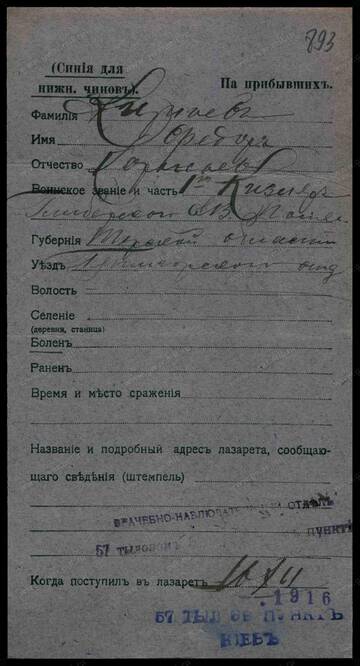 893
(Синія для
нижн. чиновъ).
На прибывшихъ.
Фамилія
Имя Федоръ
Отчество
Воинское званіе и часть 1го Кизляро
Гребенского
Губернія Терской области
Уѣздъ отд
Волость
Селеніе
(деревня, станица)
Боленъ
Раненъ
Время и мѣсто сраженія
Названіе и подробный адресъ лазарета, сообщаю-
щаго свѣдѣнія (штемпель)
ВРАЧЕБНО-НАБЛЮДАТЕЛЬНЫЙ ОТДѢЛЪ
57 ТЫЛОВОЙ ПУНКТЪ
Когда поступилъ въ лазаретъ 16 XII
.1916
57 ТЫЛ ЭВ ПУНКТЪ
КІЕВЪ